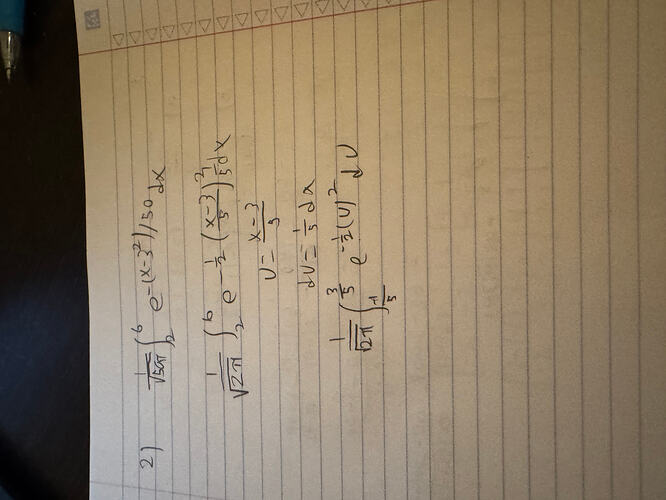 2) 1/√50π ∫₂⁶ e^-(x-3²)/50 dx
1/√2π ∫₂⁶ e^-1/2 (x-3/5)² 1/5 dx
U = x-3/5
dU = 1/5 dx
1/√2π ∫_{-1/5}^{3/5} e^-1/2(U)² dU